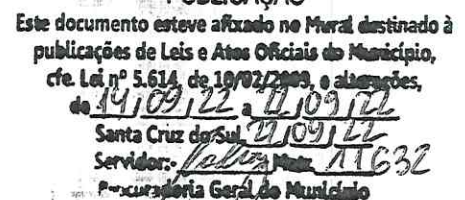 PUBLICAÇÃO
Este documento esteve afixado no Mural destinado à
publicações de Leis e Atos Oficiais do Município,
cfe. Lei nº 5.614, de 10/02/2009, e alterações,
de 14/09/22 a 22/09/22
Santa Cruz do Sul, 22/09/22
Servidor:- Matr. 11632
Procuradoria Geral do Município